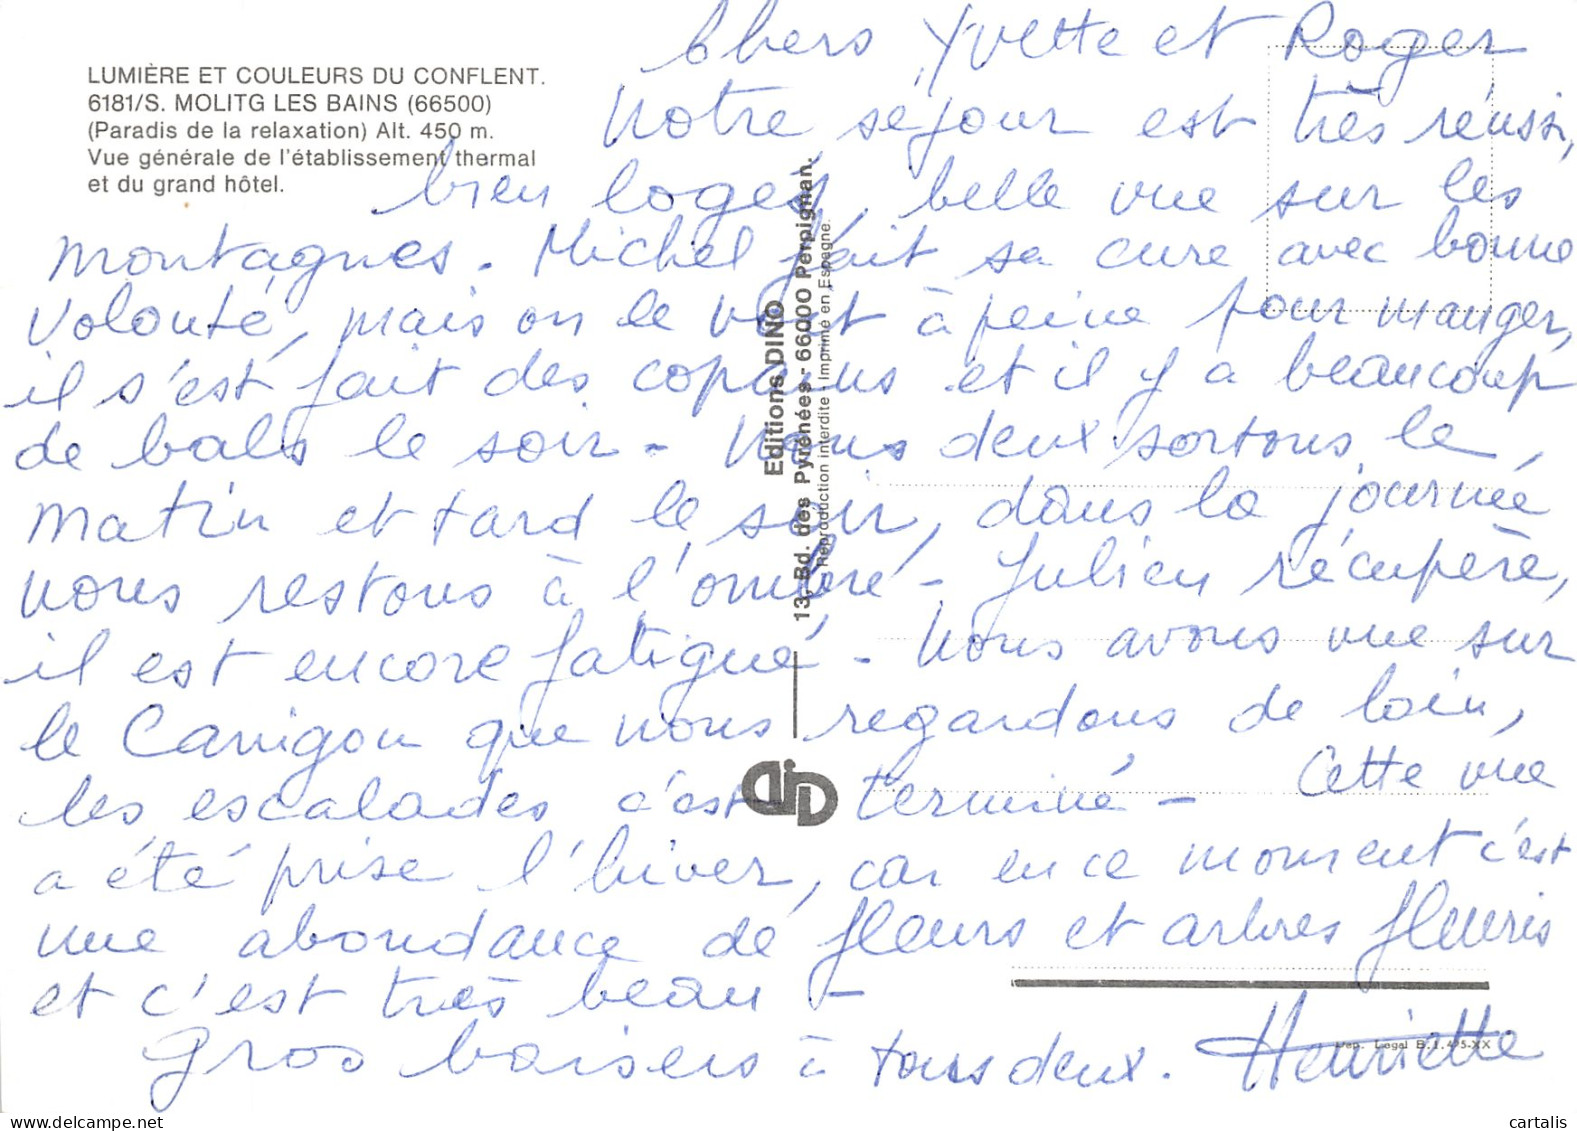 LUMIÈRE ET COULEURS DU CONFLENT.
6181/S. MOLITG LES BAINS (66500)
(Paradis de la relaxation) Alt. 450 m.
Vue générale de l'établissement thermal
et du grand hôtel.
Chers Yvette et Roger
Notre séjour est très réussi,
bien logés, belle vue sur les
montagnes. Michel fait sa cure avec bonne
volonté, mais on le voit à peine pour manger,
il s'est fait des copains et il y a beaucoup
de bals le soir - Nous deux sortons le
matin et tard le soir, dans la journée
nous restons à l'ombre - Julien récupère,
il est encore fatigué - Nous avons vue sur
le Canigou que nous regardons de loin,
les escalades c'est terminé - Cette vue
a été prise l'hiver, car en ce moment c'est
une abondance de fleurs et arbres fleuris
et c'est très beau -
Gros baisers à tous deux. Henriette
Editions DINO
13, Bd. des Pyrénées - 66000 Perpignan.
Reproduction interdite - Imprimé en Espagne.
DID
Dep. Legal B.1.495-XX
cartalis